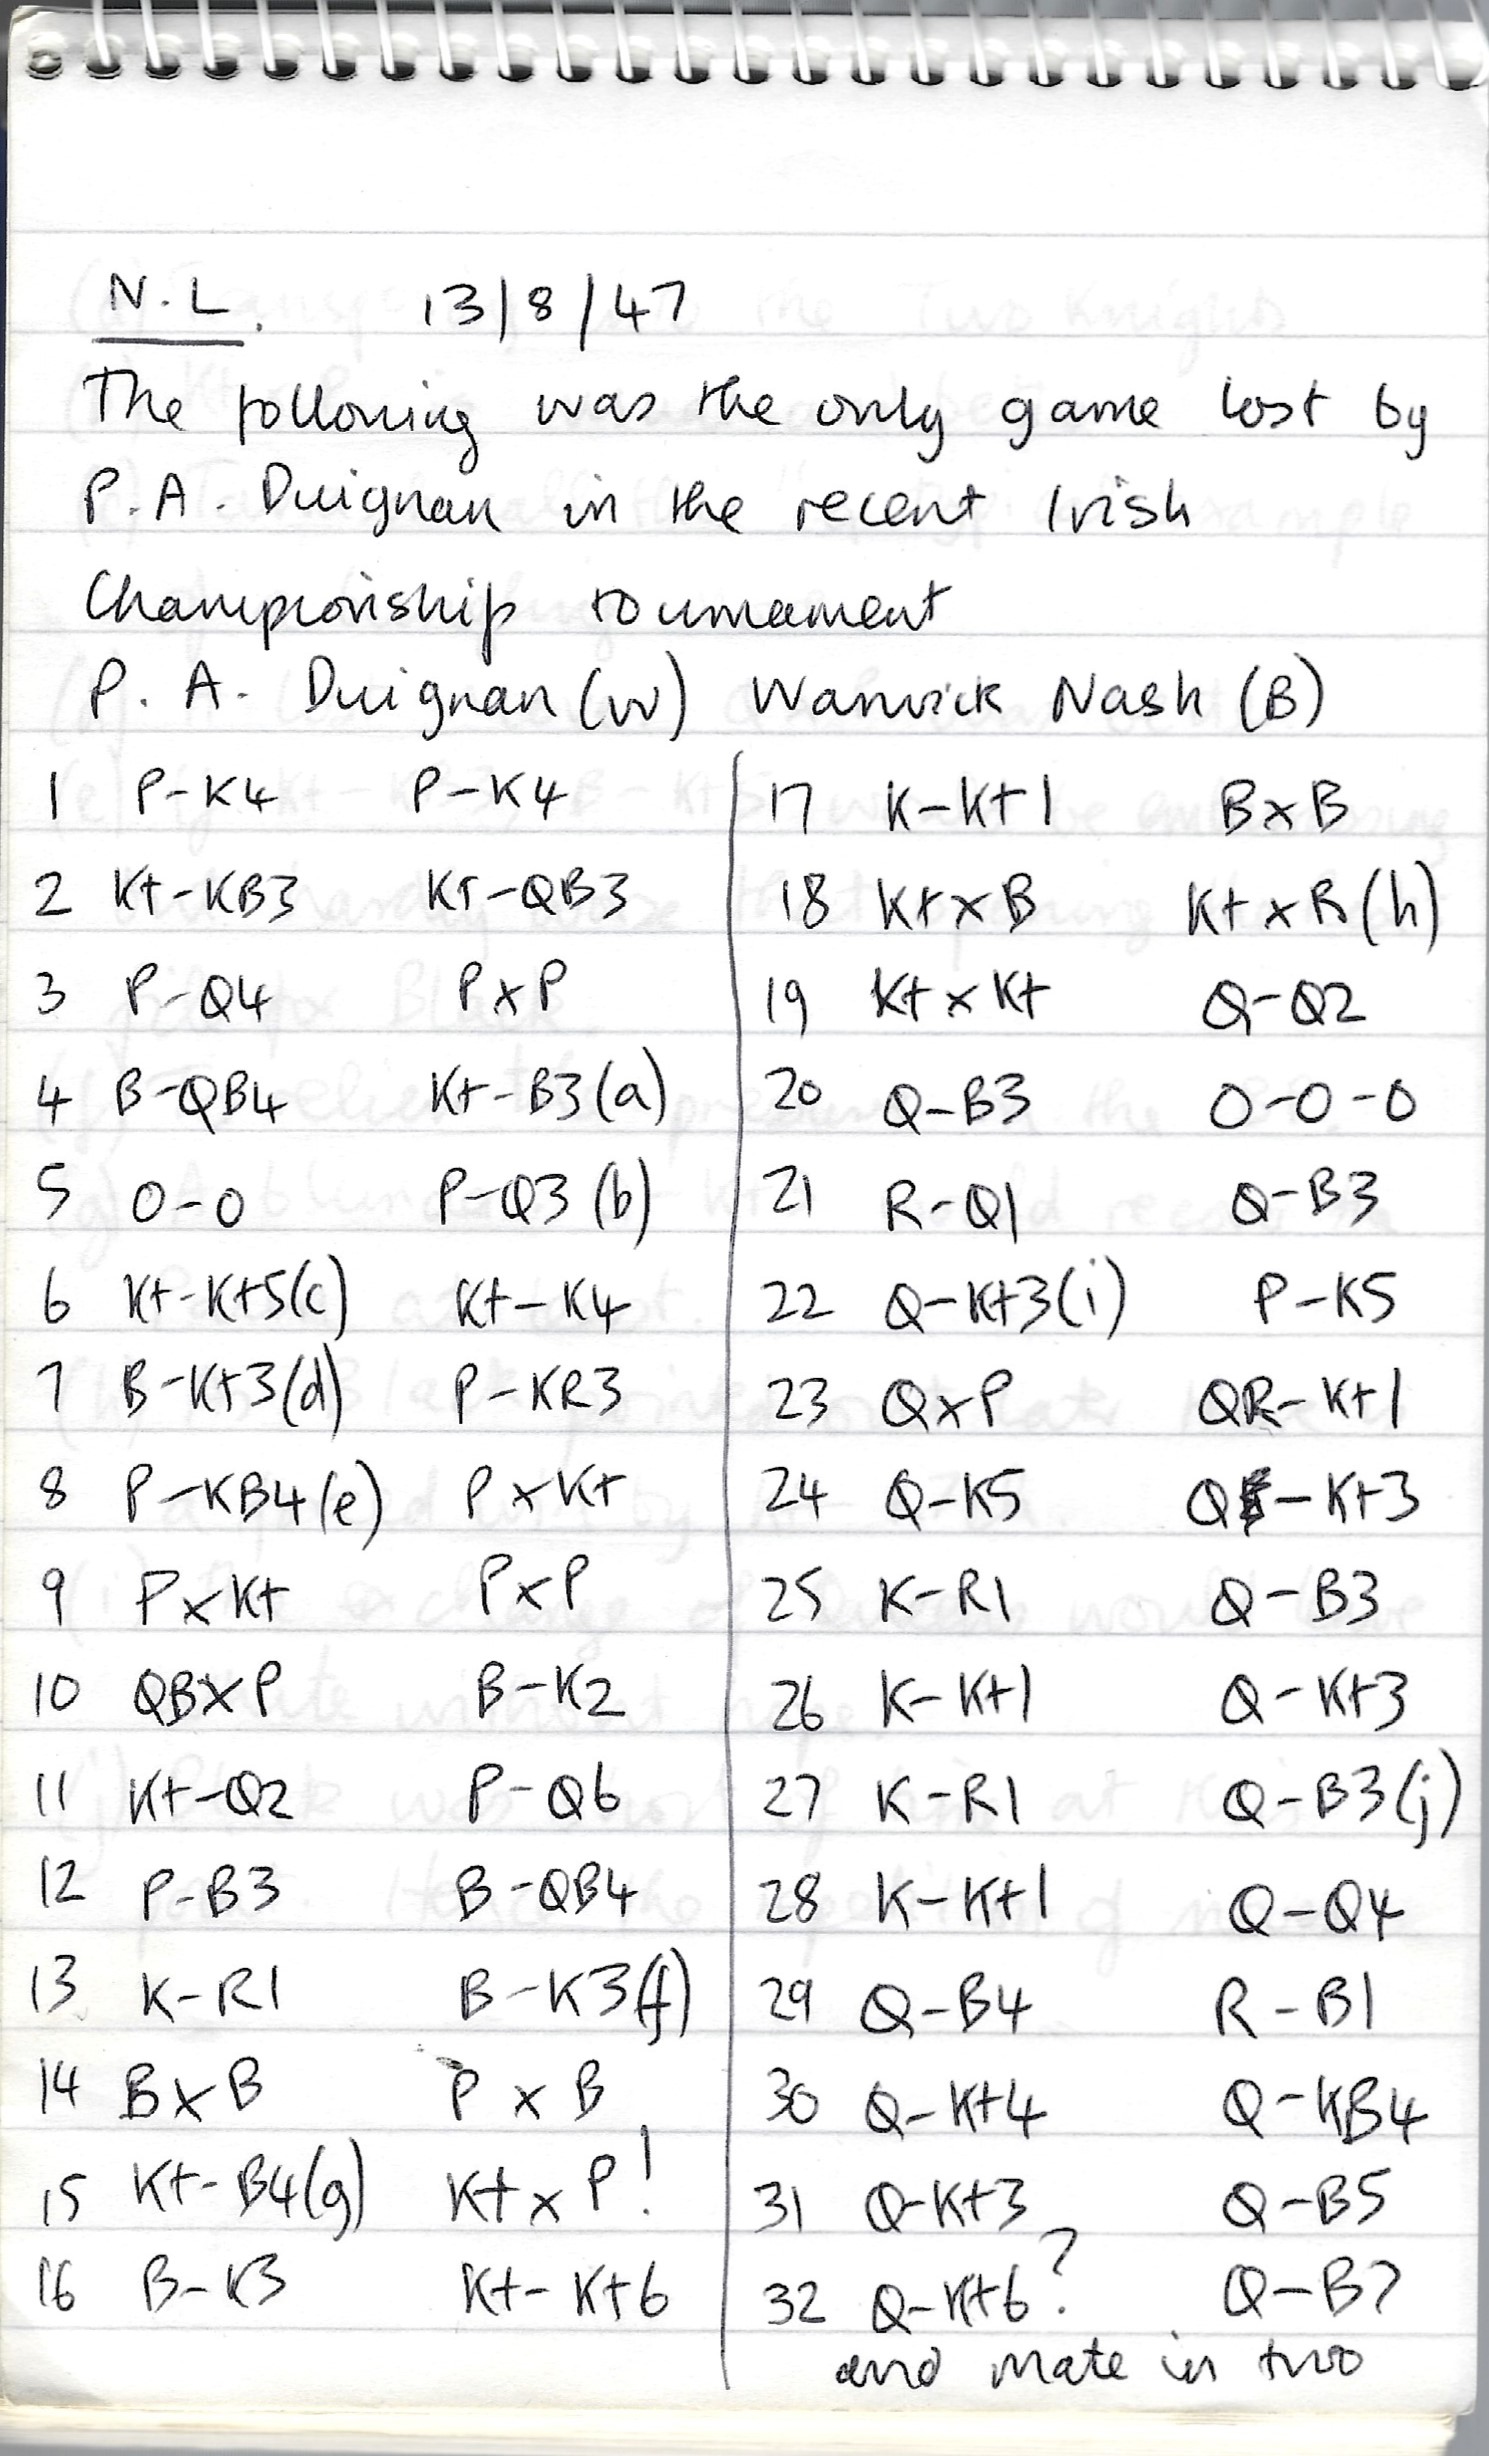 N.L. 13/8/47
The following was the only game lost by
P.A. Duignan in the recent Irish
Championship tournament
P. A. Duignan (W) Warwick Nash (B)
1 P-K4 P-K4
2 Kt-KB3 Kt-QB3
3 P-Q4 PxP
4 B-QB4 Kt-B3(a)
5 O-O P-Q3(b)
6 Kt-Kt5(c) Kt-K4
7 B-Kt3(d) P-KR3
8 P-KB4(e) PxKt
9 PxKt PxP
10 QBxP B-K2
11 Kt-Q2 P-Q6
12 P-B3 B-QB4
13 K-R1 B-K3(f)
14 BxB PxB
15 Kt-B4(g) KtxP!
16 B-K3 Kt-Kt6
17 K-Kt1 BxB
18 KtxB KtxR(h)
19 KtxKt Q-Q2
20 Q-B3 O-O-O
21 R-Q1 Q-B3
22 Q-Kt3(i) P-K5
23 QxP QR-Kt1
24 Q-K5 Q-Kt3
25 K-R1 Q-B3
26 K-Kt1 Q-Kt3
27 K-R1 Q-B3(j)
28 K-Kt1 Q-Q4
29 Q-B4 R-B1
30 Q-Kt4 Q-KB4
31 Q-Kt3 Q-B5
32 Q-Kt6? Q-B7
and mate in two